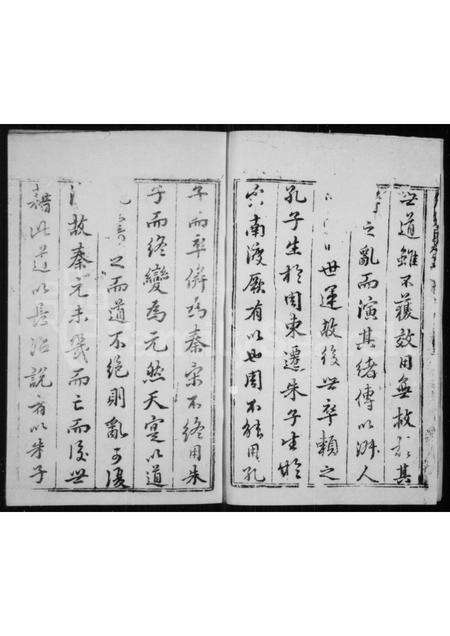 世道雖不獲效用無救於其
之亂而演其緒傳以淑人
世運故後世卒賴之
孔子生於周東遷朱子生於
宋南渡厥有以也周不能用孔
子而卒併為秦宋不終用朱
子而終變為元然天寔以道
之而道不絕則亂可復
故秦元未幾而亡而後世
藉此道以長治說者以朱子